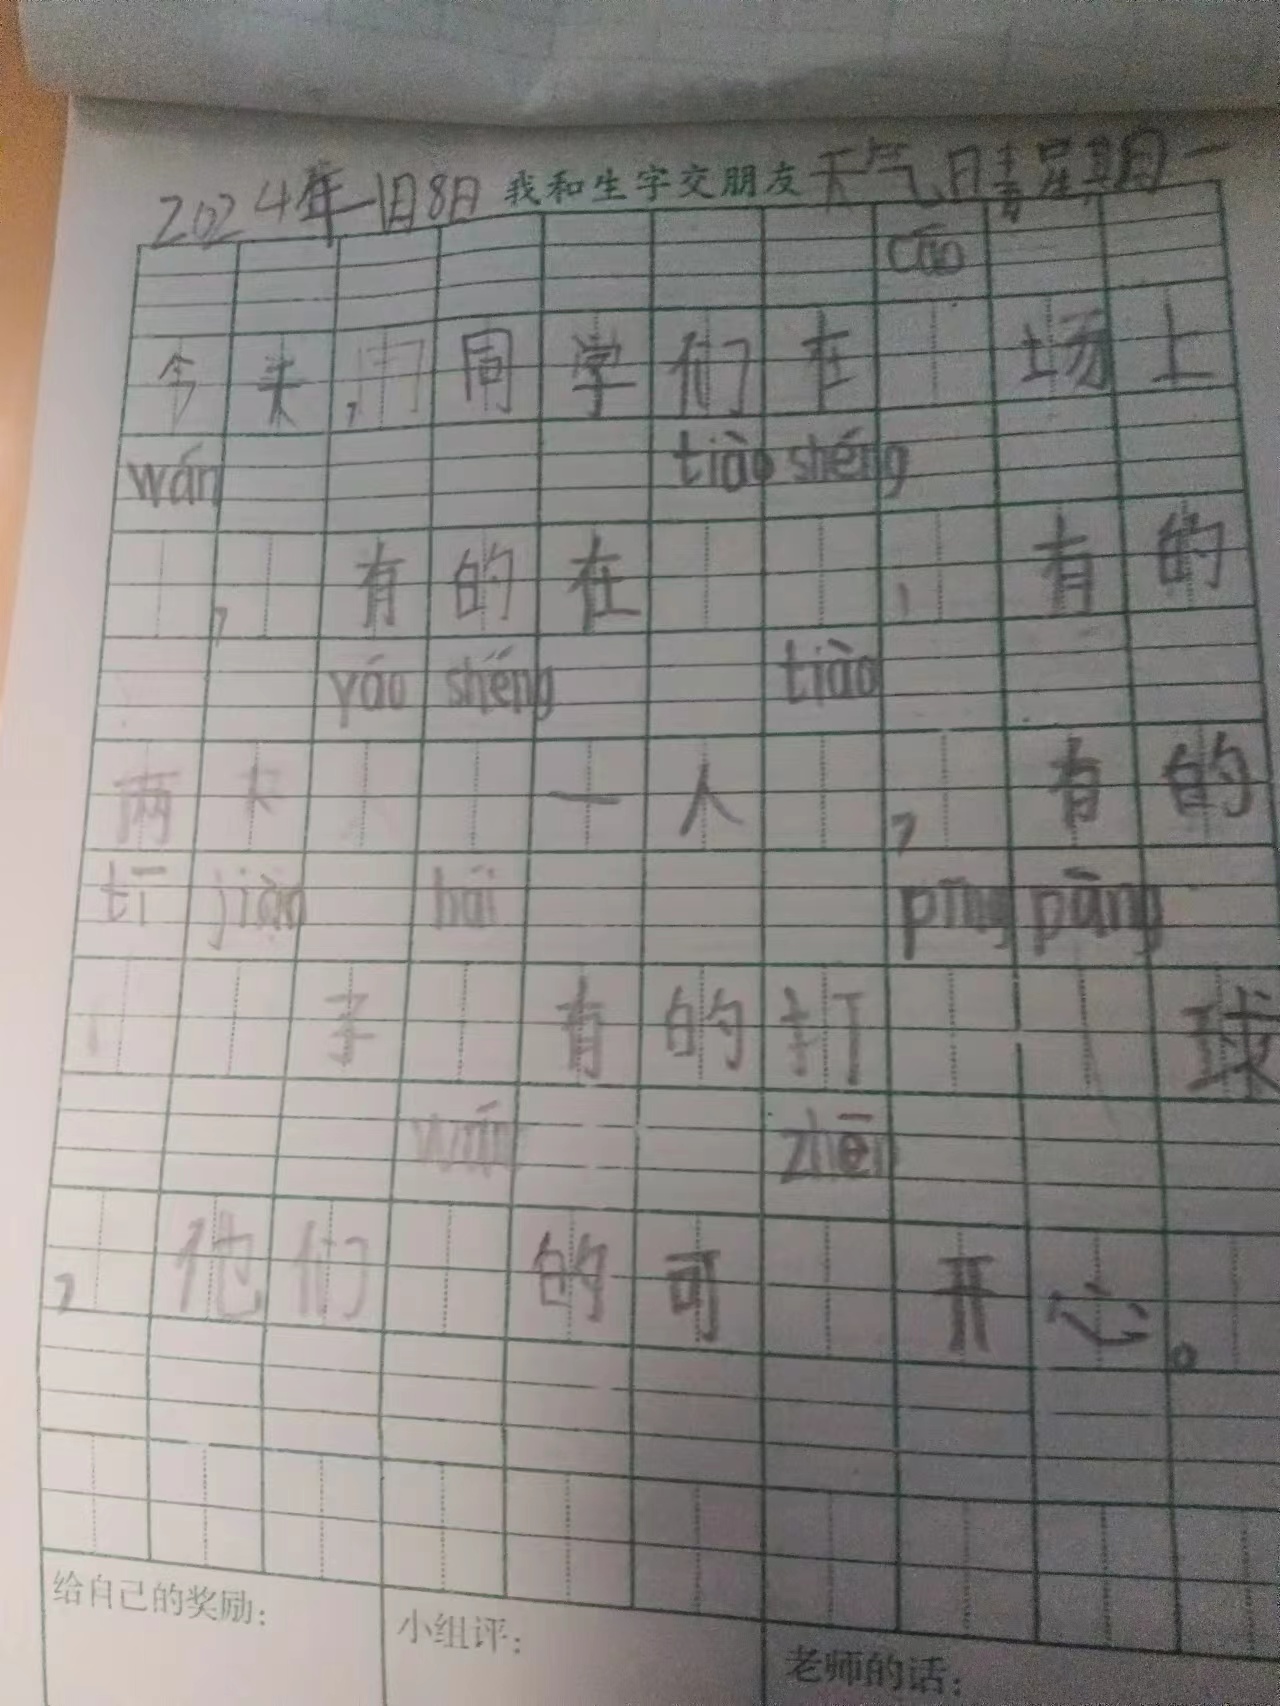 2024年1月8日 我和生字交朋友 天气日晴星期一
cāo
今天,同学们在 场上
wán tiào shéng
, 有的在 , 有的
yáo shéng tiào
两 一人 , 有的
tī jiàn hái pīng pāng
子 有的打 球
wán zhēn
, 他们 的可 开心。
给自己的奖励:
小组评:
老师的话: